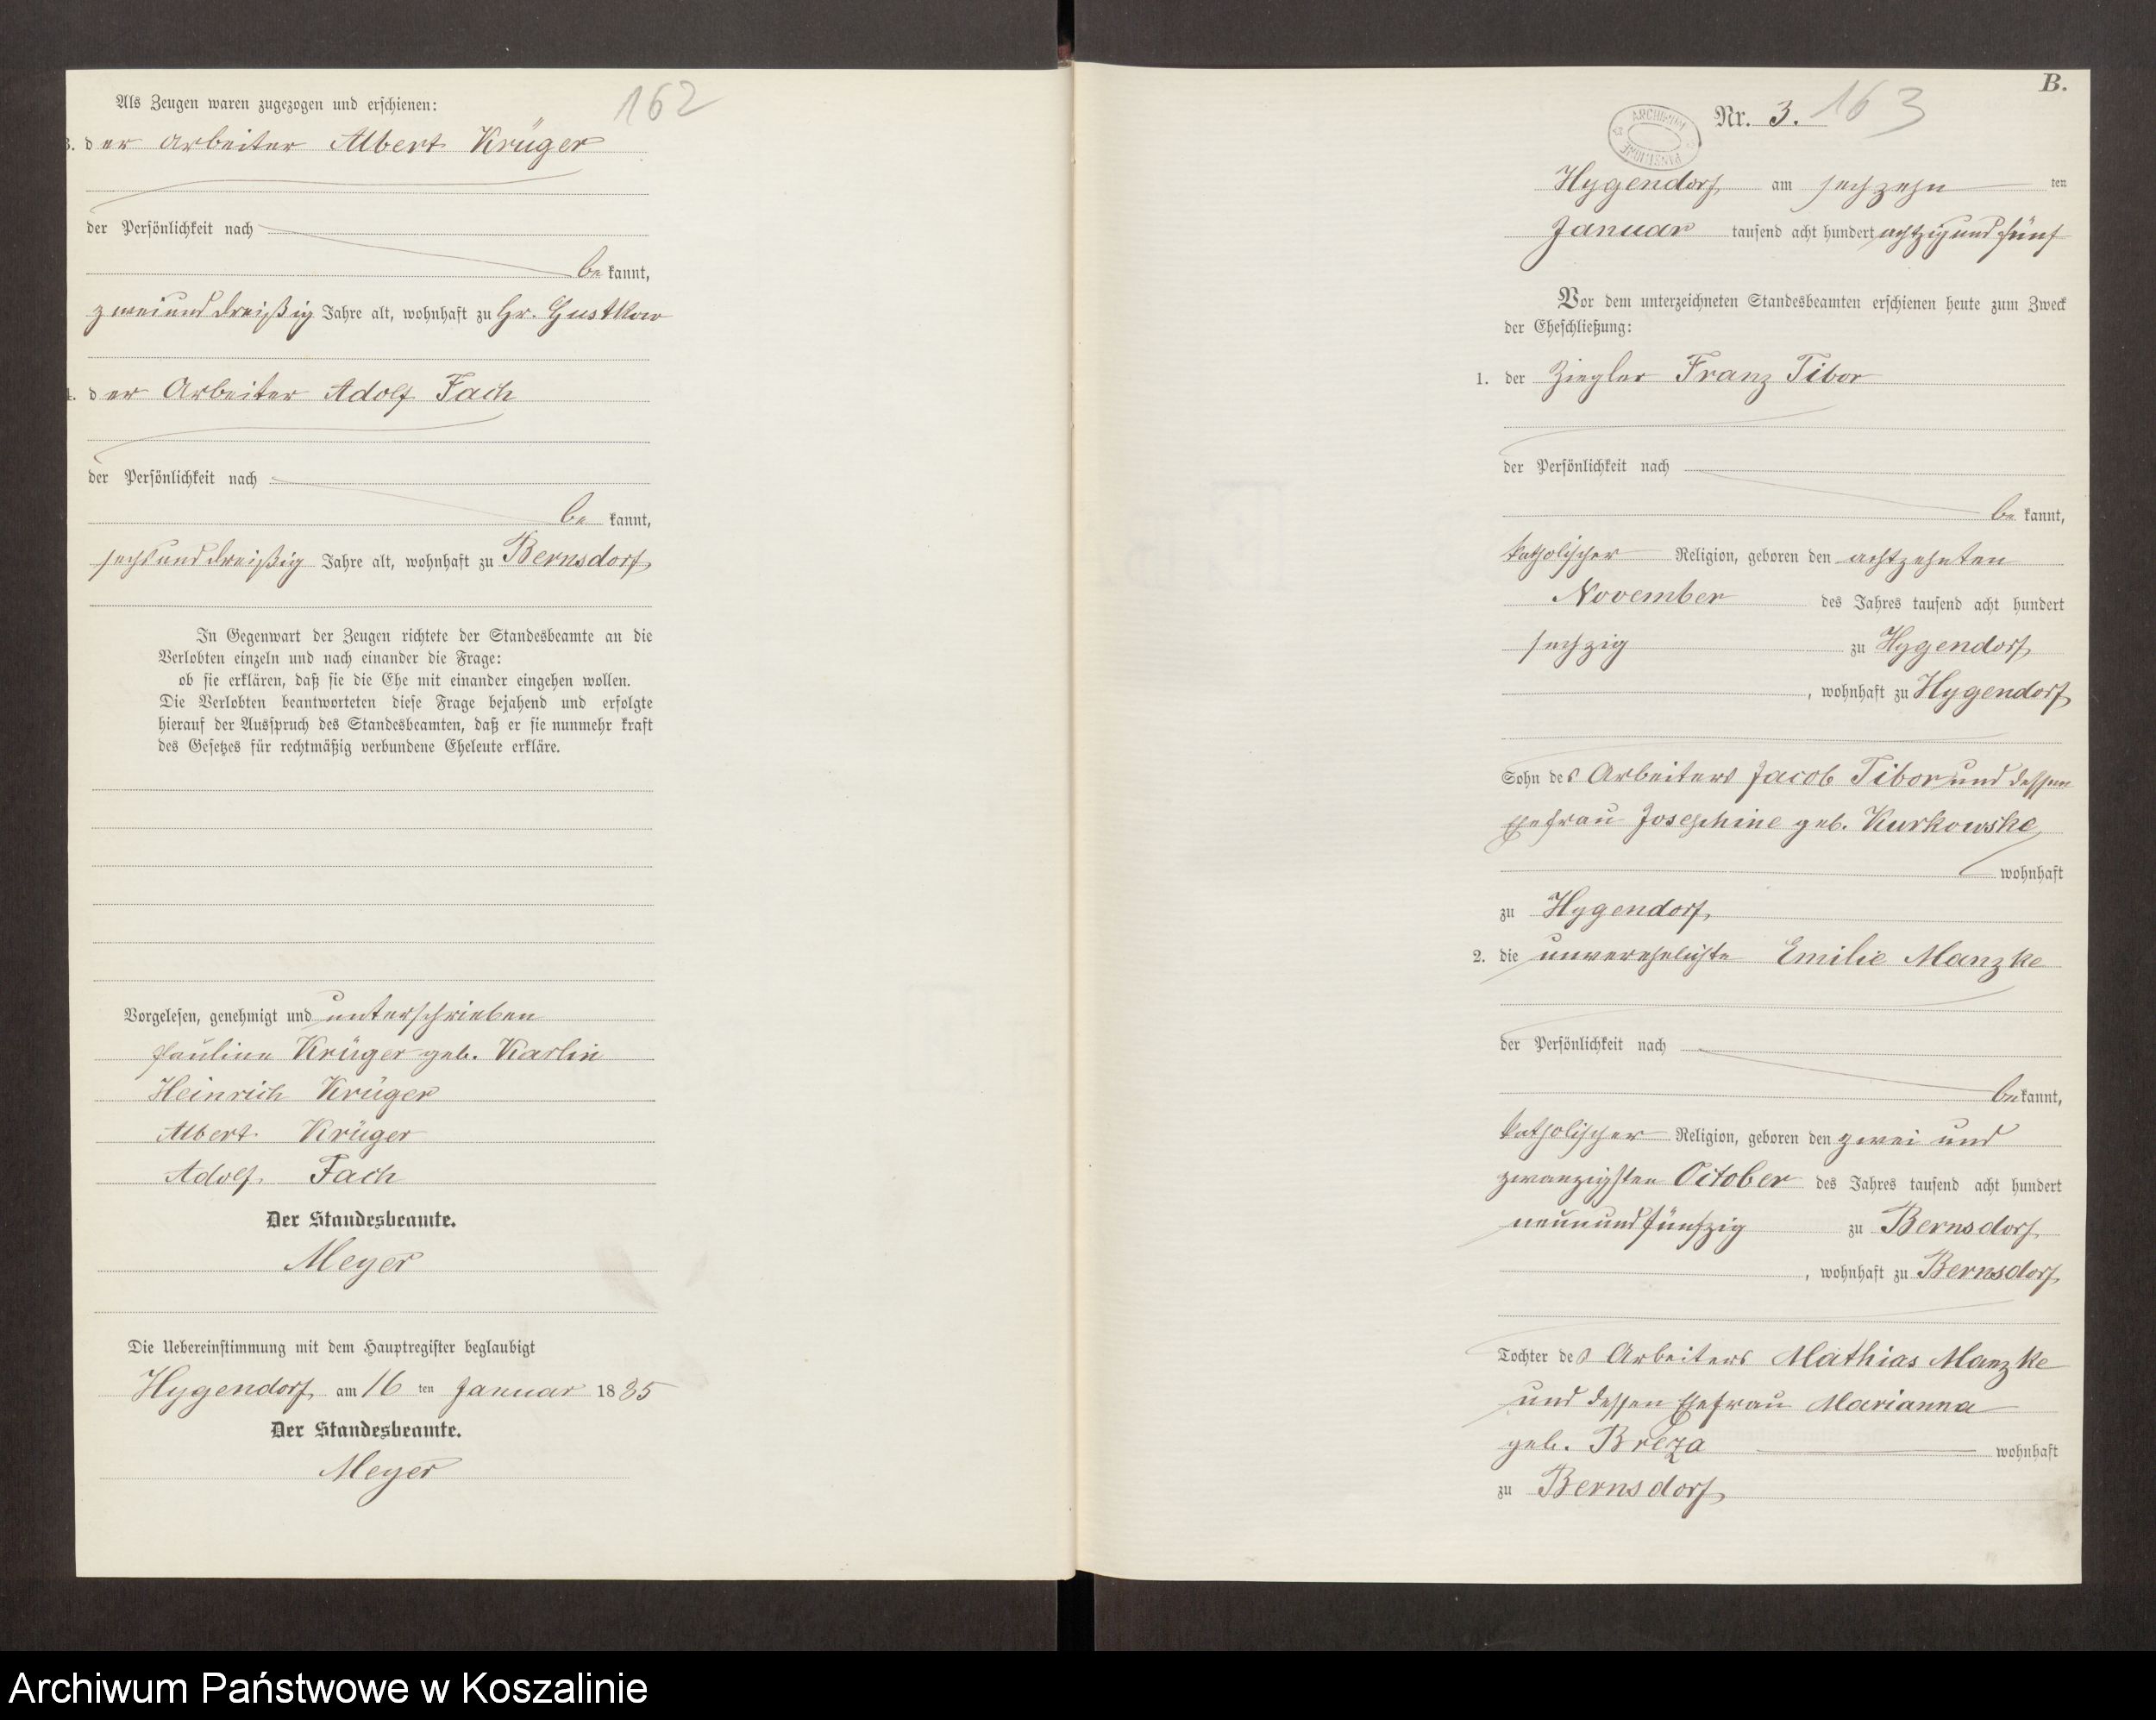 162
Als Zeugen waren zugezogen und erschienen:
3. der Arbeiter Albert Krüger
der Persönlichkeit nach
be kannt,
zweiunddreißig Jahre alt, wohnhaft zu Gr. Gustkow
4. der Arbeiter Adolf Fach
der Persönlichkeit nach
be kannt,
sechsunddreißig Jahre alt, wohnhaft zu Bernsdorf,
In Gegenwart der Zeugen richtete der Standesbeamte an die
Verlobten einzeln und nach einander die Frage:
ob sie erklären, daß sie die Ehe mit einander eingehen wollen.
Die Verlobten beantworteten diese Frage bejahend und erfolgte
hierauf der Ausspruch des Standesbeamten, daß er sie nunmehr kraft
des Gesetzes für rechtmäßig verbundene Eheleute erkläre.
Vorgelesen, genehmigt und unterschrieben
Pauline Krüger geb. Karlin
Heinrich Krüger
Albert Krüger
Adolf Fach
Der Standesbeamte.
Meyer
Die Uebereinstimmung mit dem Hauptregister beglaubigt
Hygendorf, am 16 ten Januar 1885
Der Standesbeamte.
Meyer
B.
Nr. 3. 163
ARCHIWUM PAŃSTWOWE
Hygendorf, am sechzehn ten
Januar tausend acht hundert achtzig und fünf
Vor dem unterzeichneten Standesbeamten erschienen heute zum Zweck
der Eheschließung:
1. der Ziegler Franz Tibor
der Persönlichkeit nach
be kannt,
katholischer Religion, geboren den achtzehnten
November des Jahres tausend acht hundert
sechzig zu Hygendorf,
, wohnhaft zu Hygendorf,
Sohn des Arbeiters Jacob Tibor und dessen
Ehefrau Josephine geb. Kurkowske,
wohnhaft
zu Hygendorf,
2. die unverehelichte Emilie Manzke
der Persönlichkeit nach
be kannt,
katholischer Religion, geboren den zwei und
zwanzigsten October des Jahres tausend acht hundert
neunundfünfzig zu Bernsdorf,
, wohnhaft zu Bernsdorf,
Tochter des Arbeiters Mathias Manzke
und dessen Ehefrau Marianna
geb. Breza wohnhaft
zu Bernsdorf,
Archiwum Państwowe w Koszalinie